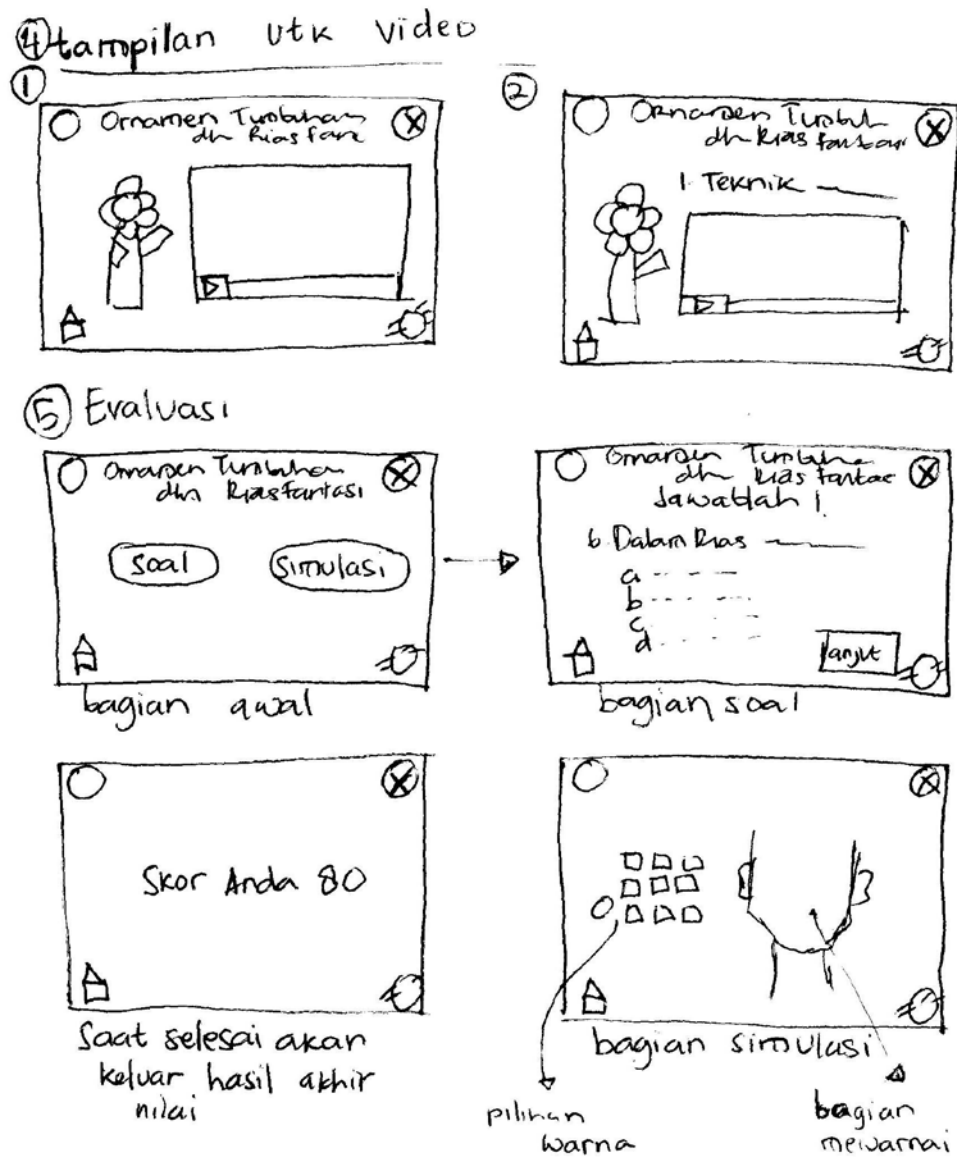 ④ tampilan utk video
①
Ornamen Tumbuhan
dlm Rias Fan
X
②
Ornamen Tumbuh
dlm Rias fantasi
X
1. Teknik
⑤ Evaluasi
Ornamen Tumbuhan
dlm Rias fantasi
X
soal
simulasi
bagian awal
Ornamen Tumbuhan
dlm Rias fantasi
X
Jawablah !
6. Dalam Rias
a
b
c
d
lanjut
bagian soal
X
Skor Anda 80
Saat selesai akan
keluar hasil akhir
nilai
X
bagian simulasi
pilihan
warna
bagian
mewarnai